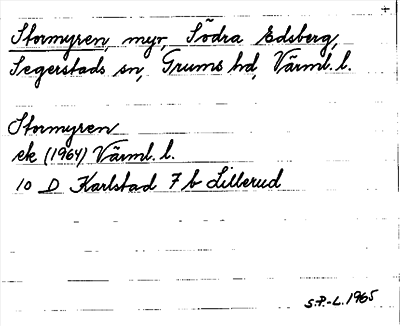 Stormyren, myr, Södra Edsberg,
Segerstads sn, Grums hd, Värml. l.
Stormyren
ek (1964) Värml. l.
10 D Karlstad 7 b Lillerud
S.P.-L. 1965